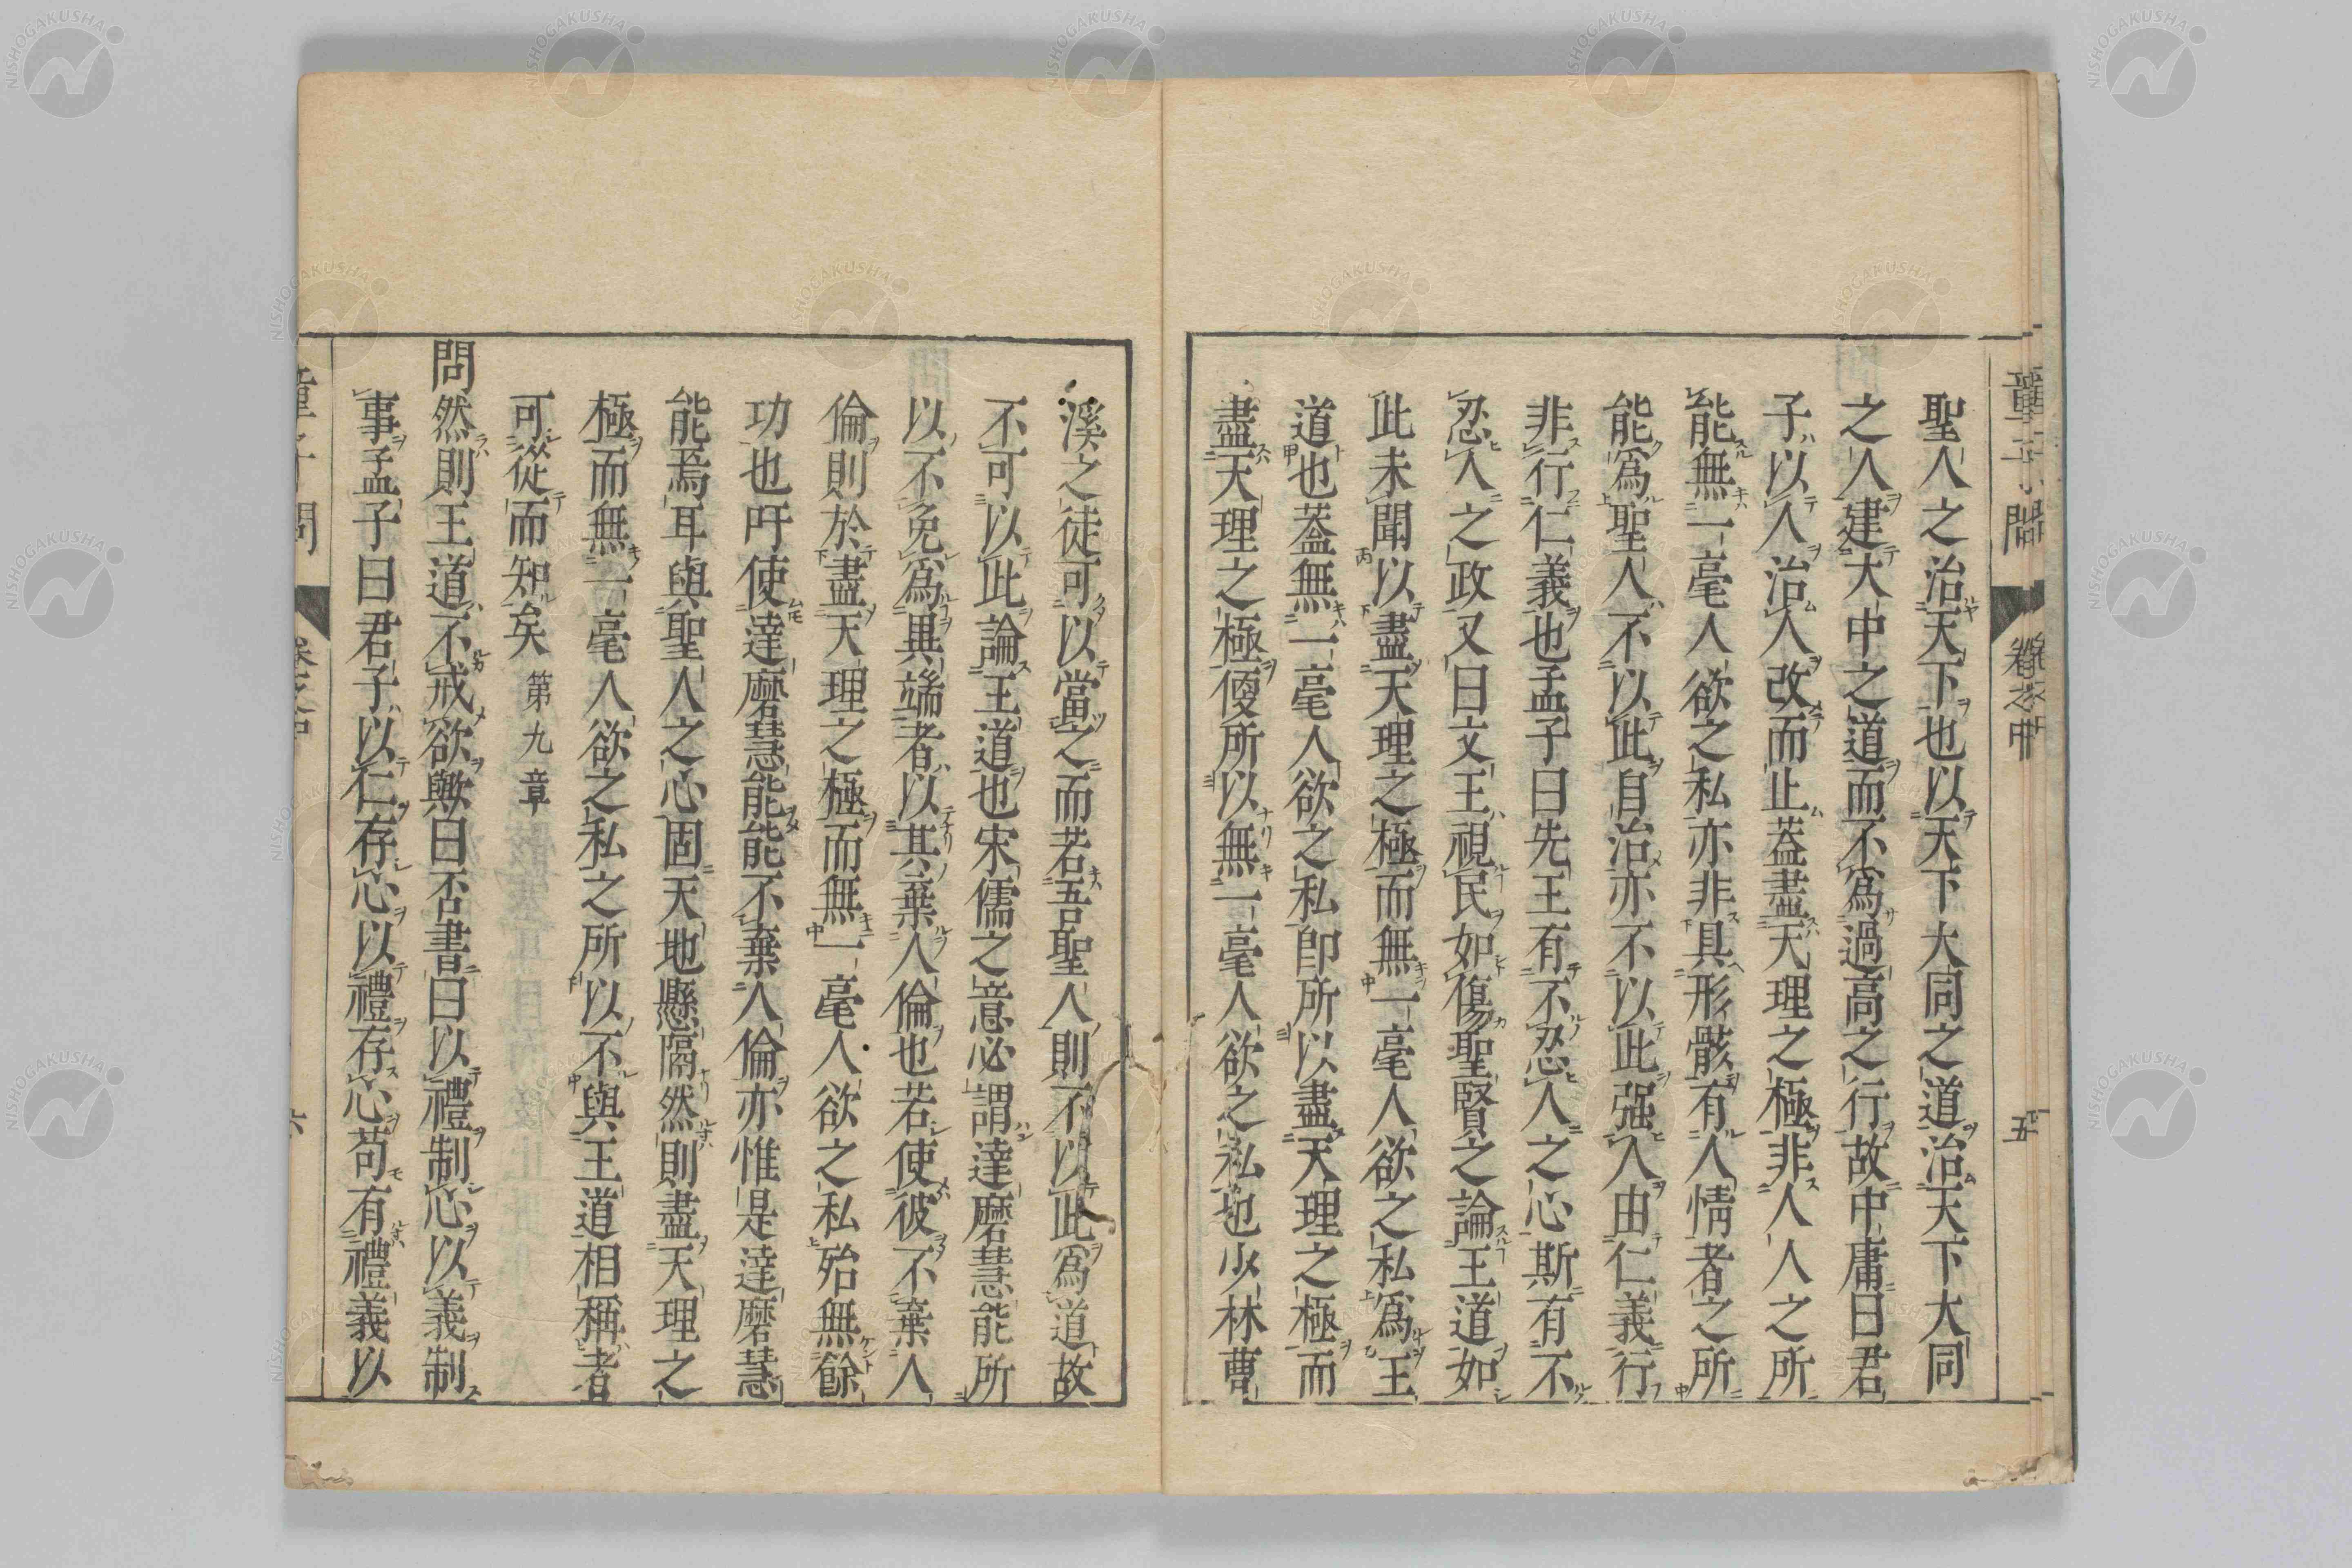 童子問
卷之中
五
聖人之治天下也以天下大同之道治天下大同
之人建大中之道而不爲過高之行故中庸曰君
子以人治人改而止蓋盡天理之極非人人之所
能無一毫人欲之私亦非具形骸有人情者之所
能爲聖人不以此自治亦不以此强人由仁義行
非行仁義也孟子曰先王有不忍人之心斯有不
忍人之政又曰文王視民如傷聖賢之論王道如
此未聞以盡天理之極而無一毫人欲之私爲王
道也蓋無一毫人欲之私卽所以盡天理之極而
盡天理之極便所以無一毫人欲之私也少林曹
溪之徒可以當之而若吾聖人則不以此爲道故
不可以此論王道也宋儒之意必謂達磨慧能所
以不免爲異端者以其棄人倫也若使彼不棄人
倫則於盡天理之極而無一毫人欲之私殆無餘
功也吁使達磨慧能能不棄人倫亦惟是達磨慧
能焉耳與聖人之心固天地懸隔然則盡天理之
極而無一毫人欲之私之所以不與王道相稱者
可從而知矣 第九章
問然則王道不戒欲歟曰否書曰以禮制心以義制
事孟子曰君子以仁存心以禮存心苟有禮義以
童子問
卷之中
六
NISHOGAKUSHA